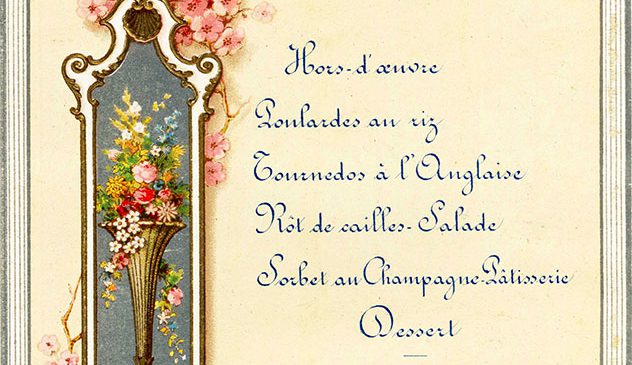 Hors-d'œuvre
Poulardes au riz
Tournedos à l'Anglaise
Rôt de cailles-Salade
Sorbet au Champagne-Pâtisserie
Dessert